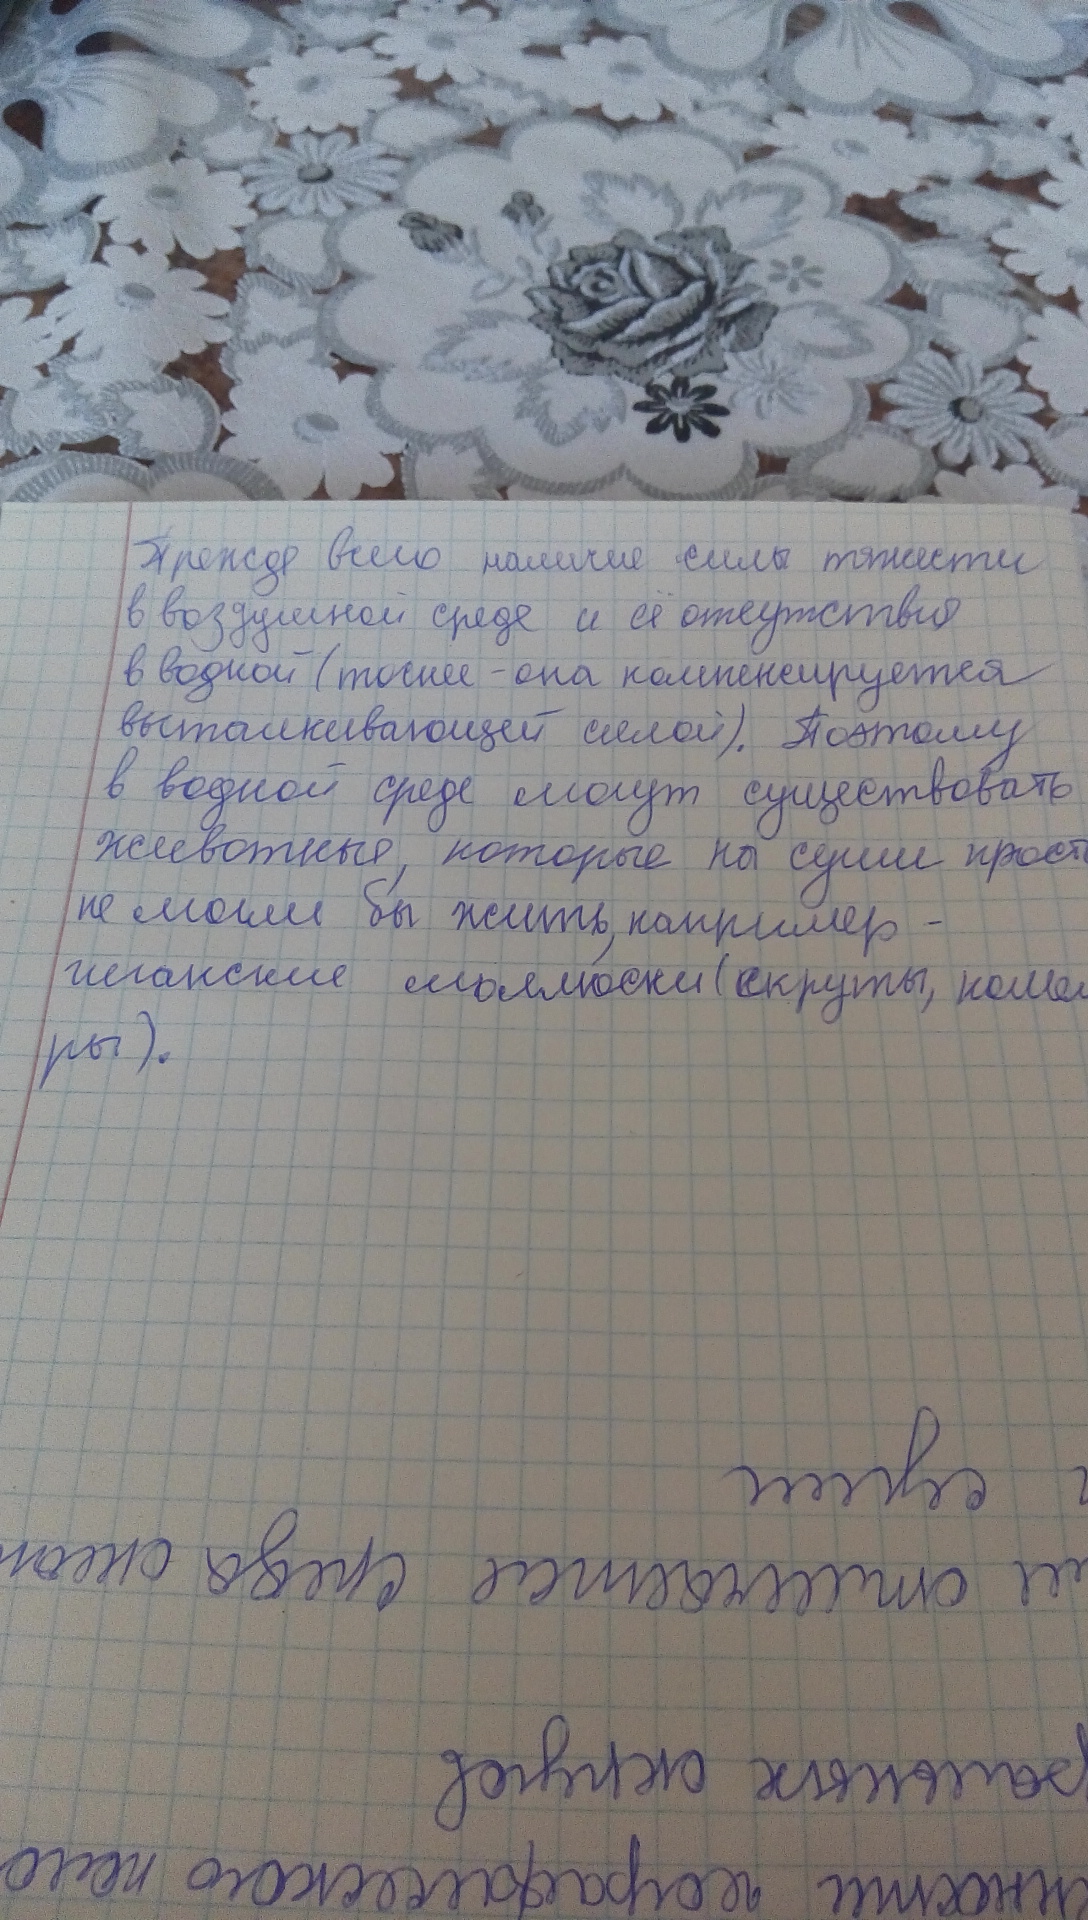 Прежде всего наличие силы тяжести
в воздушной среде и её отсутствие
в водной (точнее - она компенсируется
выталкивающей силой). Поэтому
в водной среде могут существовать
животные, которые на суши прост
не могли бы жить, например -
гиганские моллюски (скруты, кальма
ры).
суши
отличается среда океан
океанов
географического поло